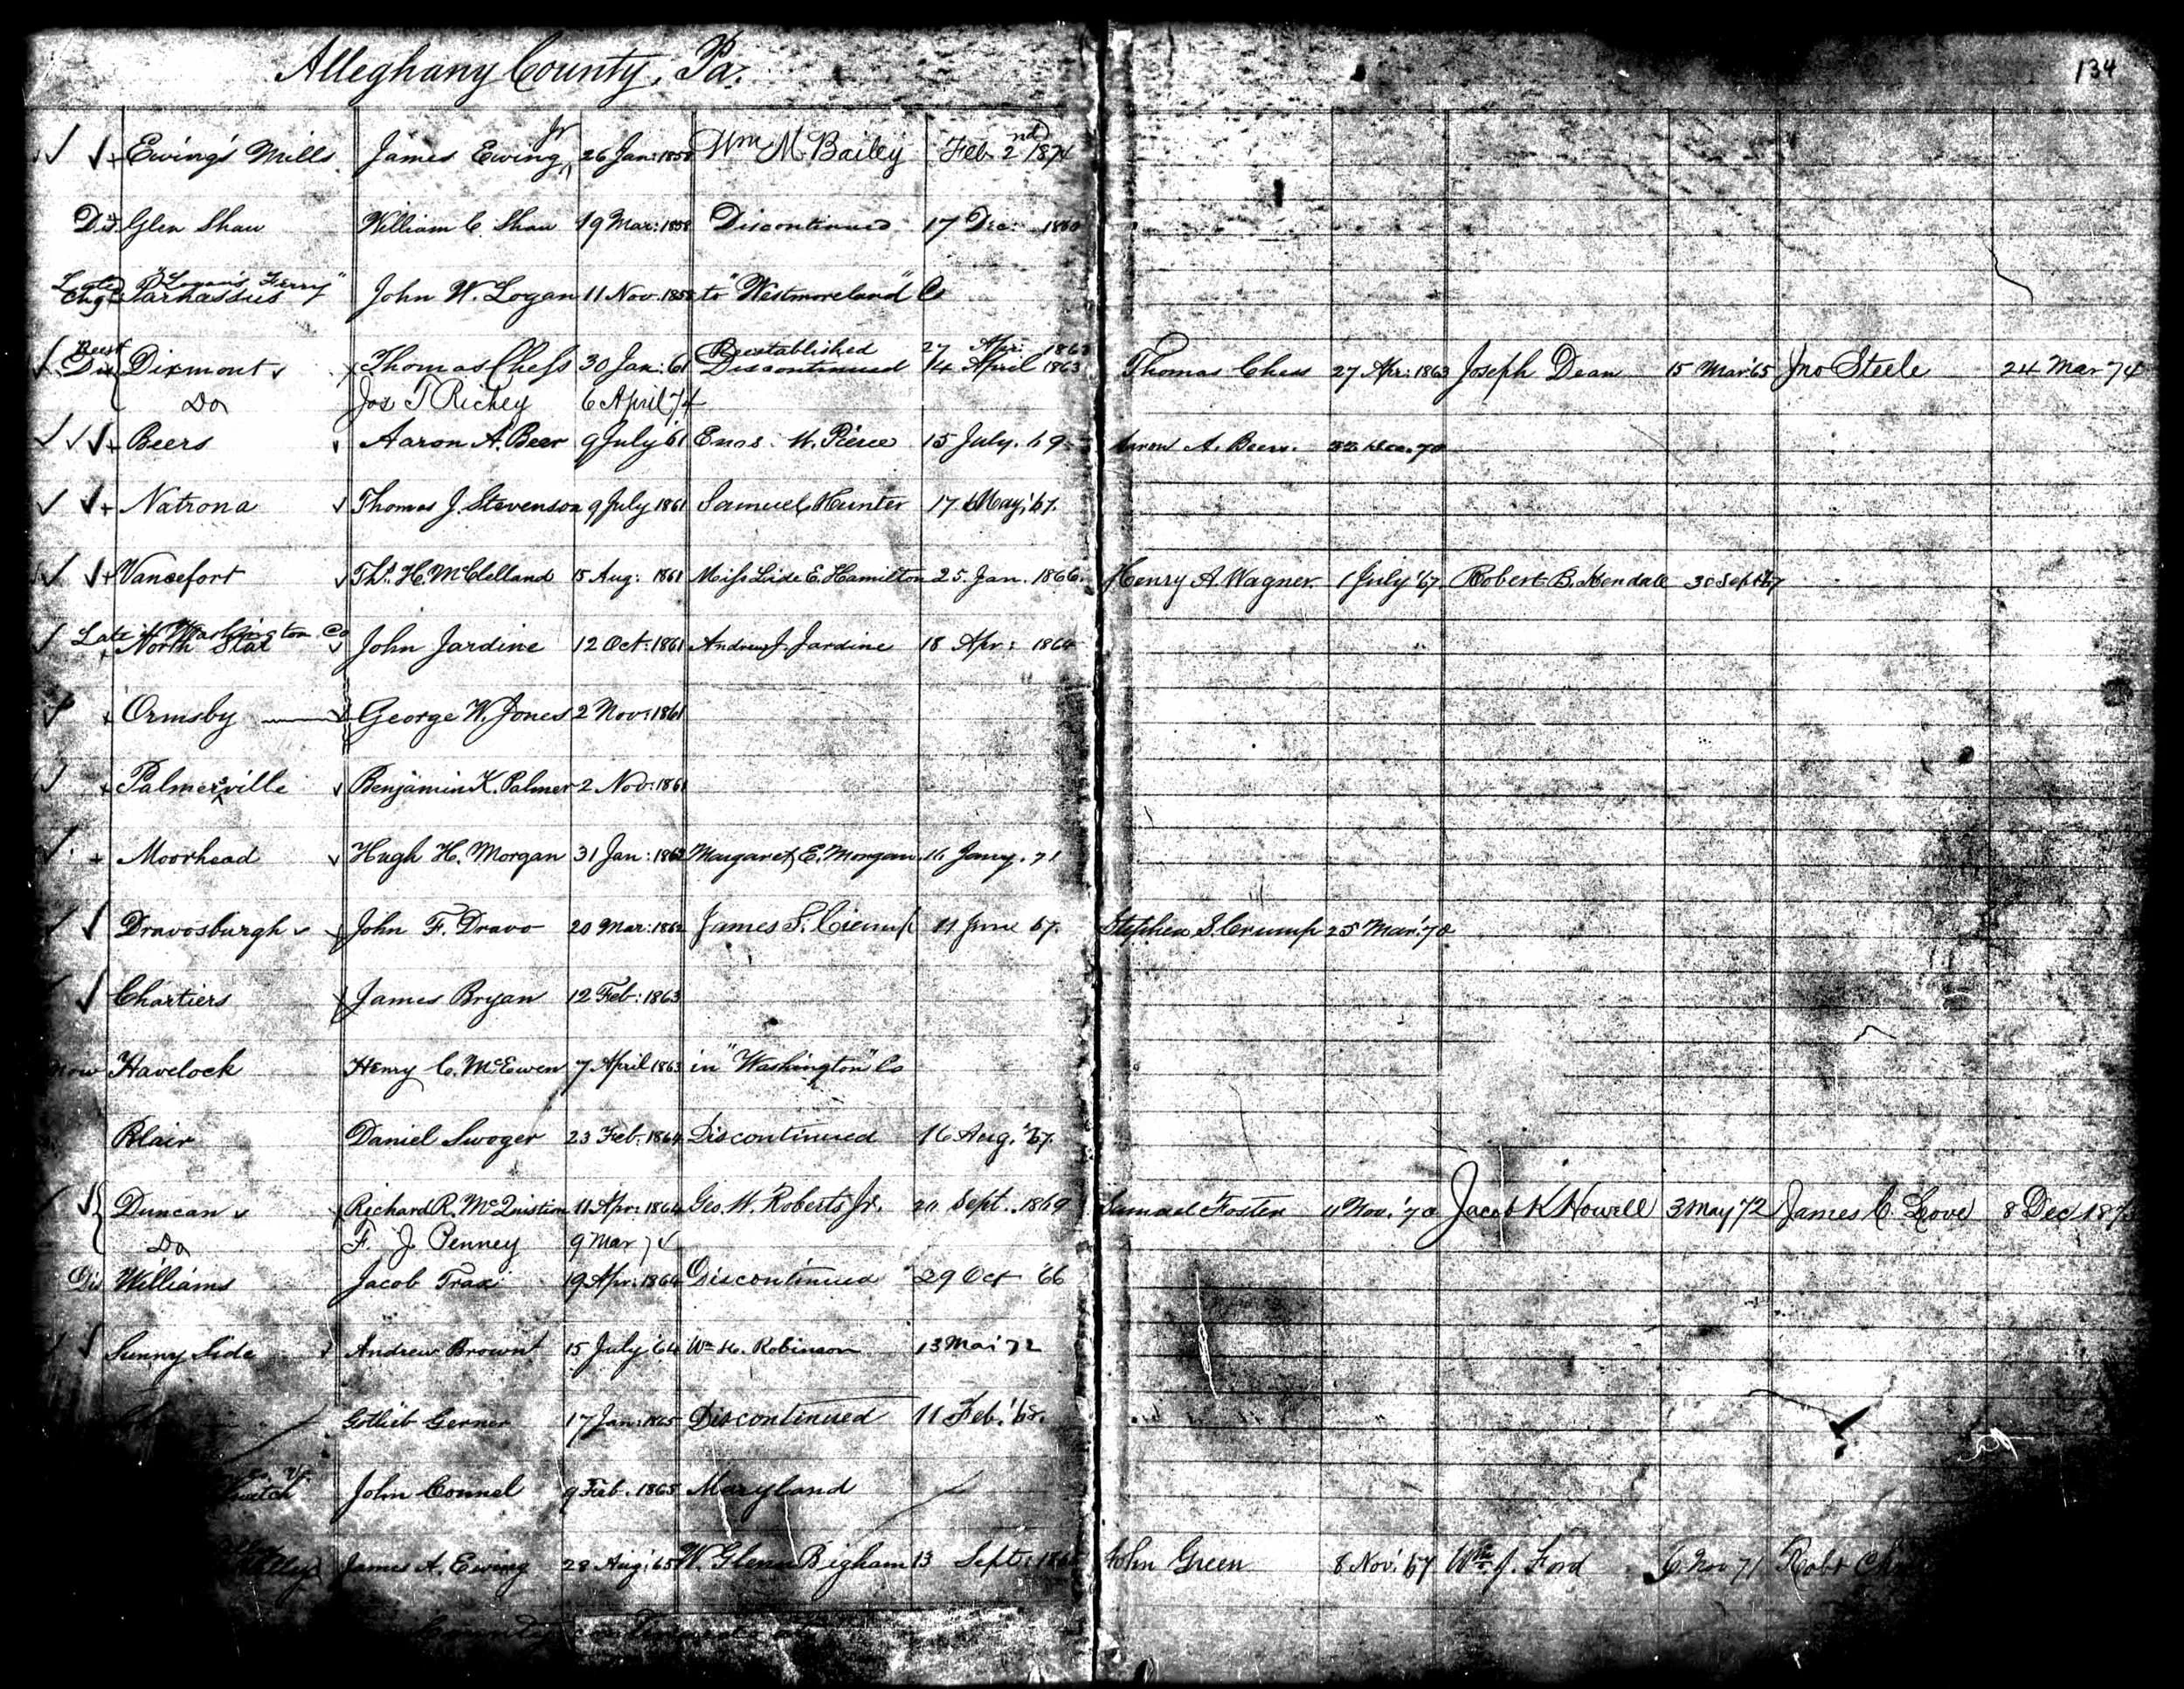 Alleghany County, Pa.
134
Ewing's Mills James Ewing Jr 26 Jan: 1858 Wm M Bailey Feb 2nd 1874
Dis Glen Shaw William C. Shaw 19 Mar: 1858 Discontinued 17 Dec: 1860
Late "Logan's Ferry"
Chgd Parnassus John W. Logan 11 Nov. 1858 to "Westmoreland" Co
Reest Reestablished 27 Apr: 1863
Dis Dixmont Thomas Chess 30 Jan: 61 Discontinued 14 April 1863 Thomas Chess 27 Apr: 1863 Joseph Dean 15 Mar '65 Jno Steele 24 Mar 74
Do Jos T Richey 6 April 74
Beers Aaron A. Beer 9 July '61 Enos M. Pierce 15 July. 69 Aaron A. Beers. Dec. 70
Natrona Thomas J. Stevenson 9 July 1861 Samuel Hunter 17 May, '67.
Vancefort Ths. H. McClelland 15 Aug: 1861 Miss Lide E. Hamilton 25. Jan. 1866. Henry A. Wagner 1 July '67 Robert B. Kendall 30 Sept '67
Late in Washington Co
North Star John Jardine 12 Oct: 1861 Andrew J. Jardine 18 Apr: 1864
Ormsby George W. Jones 2 Nov: 1861
Palmersville Benjamin K. Palmer 2 Nov: 1861
Moorhead Hugh H. Morgan 31 Jan: 1862 Margaret E. Morgan 16 Jany. 71
Dravosburgh John F. Dravo 20 Mar: 1862 James S. Crump 11 June 67. Stephen S. Crump 25 Mar. '70
Chartiers James Bryan 12 Feb: 1863
Now Havelock Henry C. McEwen 7 April 1863 in "Washington" Co
Blair Daniel Swoger 23 Feb. 1864 Discontinued 16 Aug. '67.
Duncan Richard R. McQuistion 11 Apr: 1864 Geo. W. Roberts Jr. Sept. 1869 Samuel Foster Nov. '70 Jacob K Howell 3 May 72 James C. Love 8 Dec
Do F. J. Penney 9 Mar 74
Dis Williams Jacob Trax 19 Apr: 1864 Discontinued 29 Oct '66
Sunny Side Andrew Brown 15 July '64 Wm H. Robinson 13 Mar '72
Gottlieb Gerner 17 Jan: 1865 Discontinued 11 Feb. '68.
John Connel 9 Feb. 1865 Maryland
James A. Ewing 28 Aug: '65 W. Glenn Bigham 13 Sept: John Green 8 Nov: '67 Wm J. Ford 6 Nov 71 Robt
County